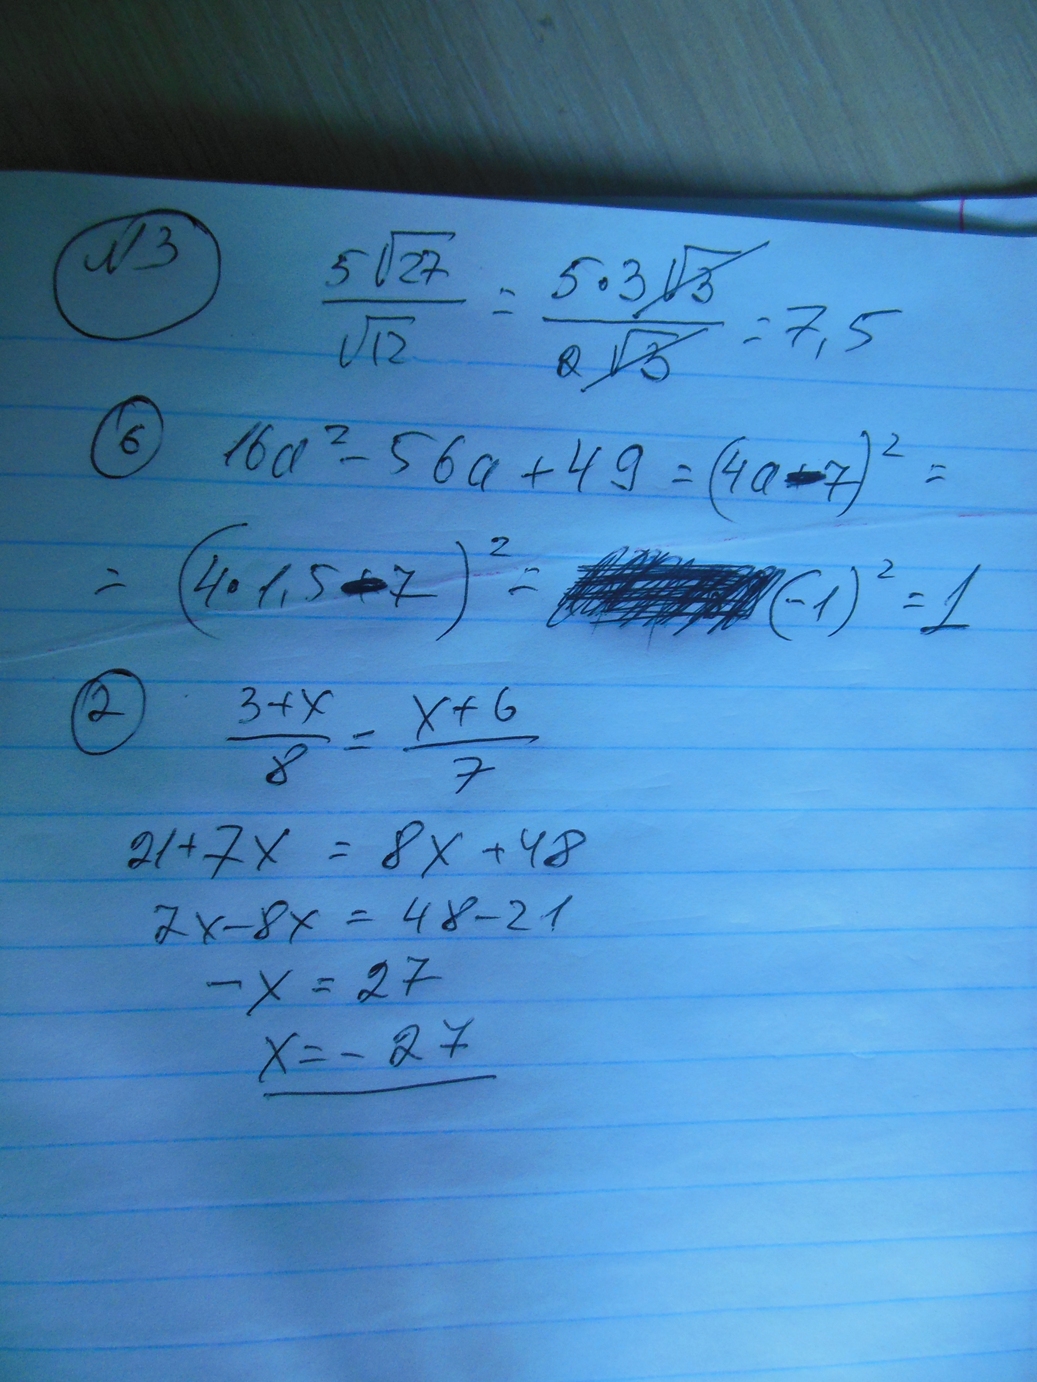 №3 5√27/√12 = 5·3√3/2√3 = 7,5
6 16a² - 56a + 49 = (4a - 7)² =
= (4·1,5 - 7)² = (-1)² = 1
2 3+x/8 = x+6/7
21+7x = 8x+48
7x-8x = 48-21
-x = 27
x = -27